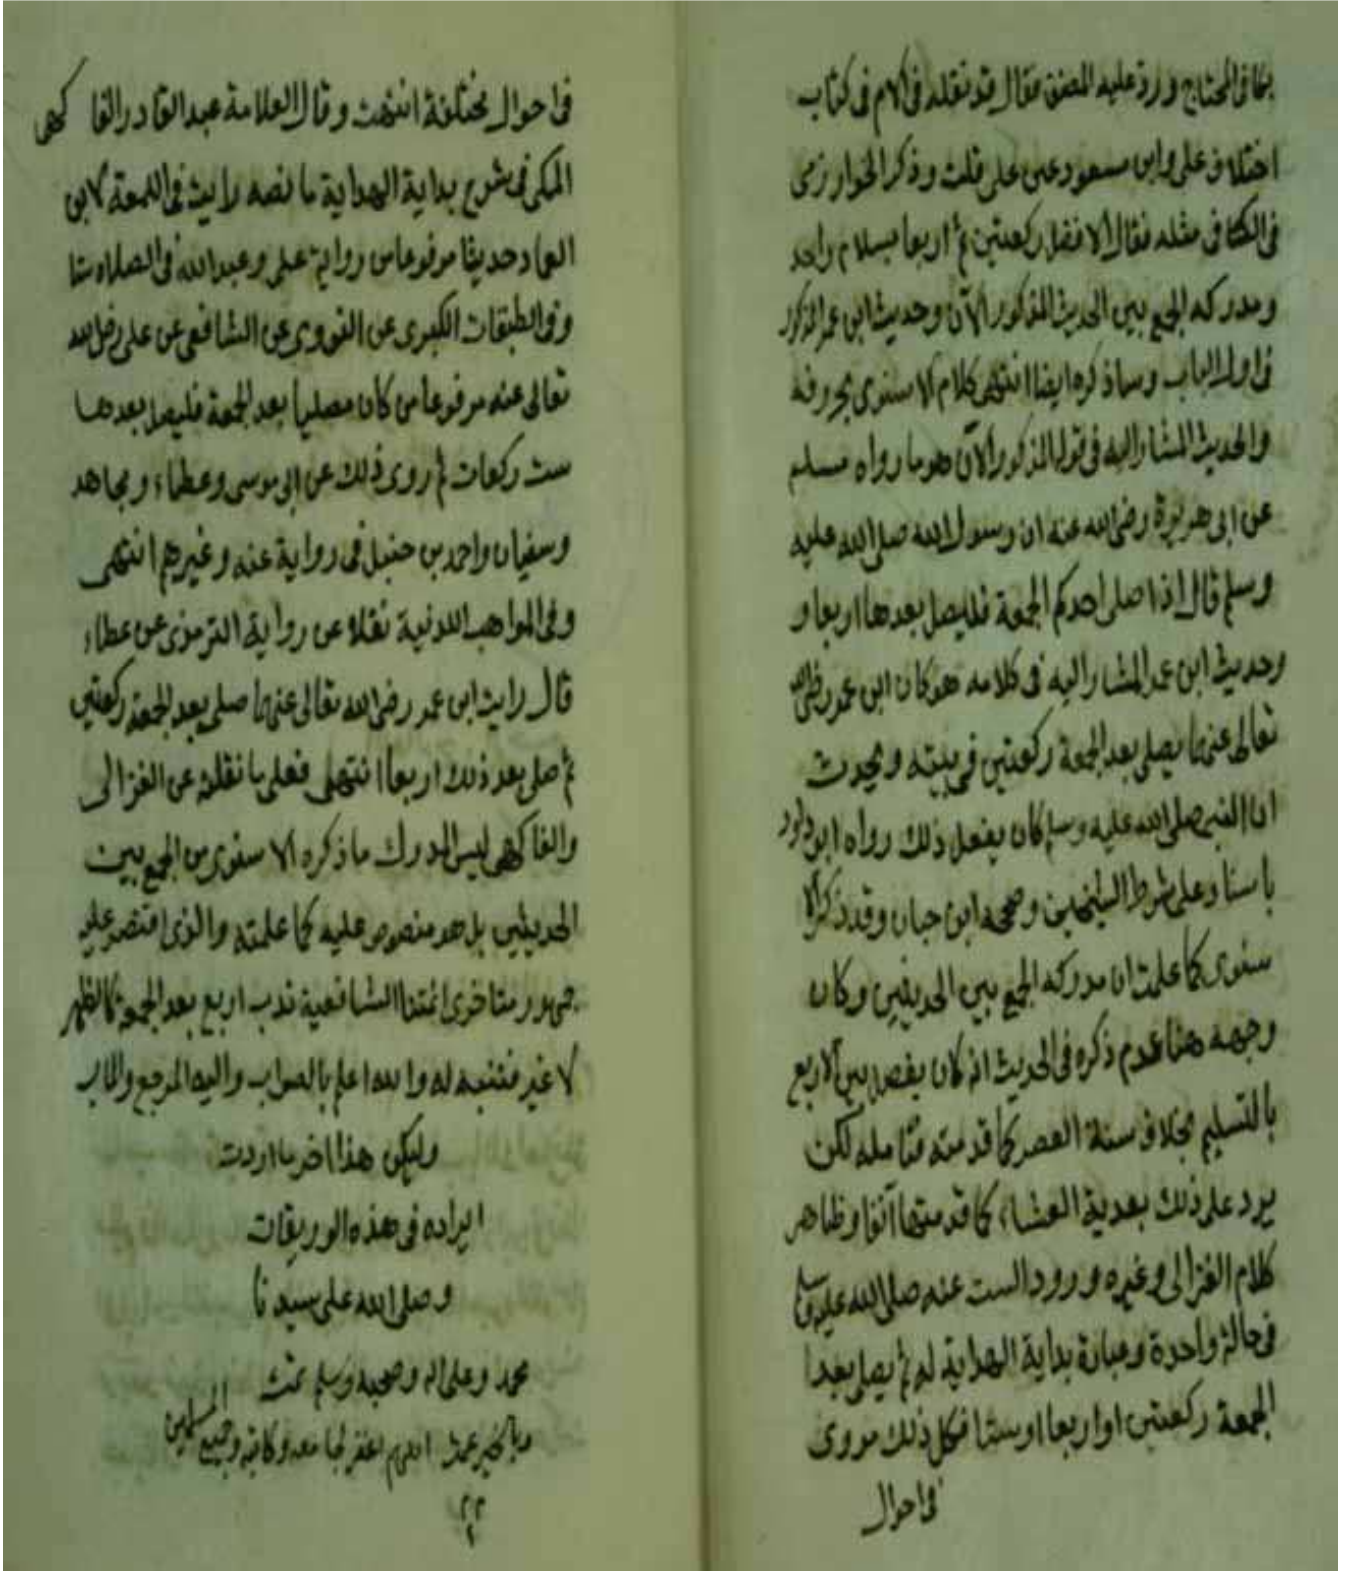 بكافي المحتاج ورد عليه المصنف فقال قد نقله في الام في كتاب
اختلاف علي وابن مسعود عن علي قلت وذكر الخوارزمى
في الكافى مثله فقال الافضل ركعتين ثم اربعا بسلام واحد
ومدركه الجمع بين الحديث المذكور الآن وحديث ابن عمر المذكور
فى اول الباب وساذكره ايضا انتهى كلام الاسنوى بحروفه
والحديث المشار اليه فى قوله المذكور الآن هو ما رواه مسلم
عن ابى هريرة رضى الله عنه ان رسول الله صلى الله عليه
وسلم قال اذا صلى احدكم الجمعة فليصل بعدها اربعا و
وحديث ابن عمر المشار اليه فى كلامه هو كان ابن عمر رضى الله
تعالى عنهما يصلى بعد الجمعة ركعتين فى بيته ويحدث
ان النبى صلى الله عليه وسلم كان يفعل ذلك رواه ابو داود
باسناد على شرط الشيخين وصححه ابن حبان وقد ذكر الا
سنوى كما علمت ان مدركه الجمع بين الحديثين وكان
وجهه هنا عدم ذكره فى الحديث انه كان يفصل بين الاربع
بالتسليم بخلاف سنة العصر كما قدمته فتامله لكن
يرد على ذلك بعدية العشاء كما قدمتها آنفا وظاهر
كلام الغزالى وغيره ورود الست عنه صلى الله عليه وسلم
فى حالة واحدة وعبارة بداية الهداية له ثم يصلى بعد ا
الجمعة ركعتين او اربعا او ستا فكل ذلك مروى
فى احوال
فى احوال مختلفة انتهت وقال العلامة عبد القادر الفاكهى
المكى فى شرح بداية الهداية ما نصه رايت فى اللمعة لابن
العماد حديثا مرفوعا من رواية على وعبد الله فى الصلاة ستا
وفى الطبقات الكبرى عن النووى عن الشافعى عن على رضى الله
تعالى عنه مرفوعا من كان مصليا بعد الجمعة فليصل بعدها
ست ركعات ثم روى ذلك عن ابى موسى وعطاء ومجاهد
وسفيان واحمد بن حنبل فى رواية عنه وغيرهم انتهى
وفى المواهب اللدنية نقلا عن رواية الترمذى عن عطاء
قال رايت ابن عمر رضى الله تعالى عنهما صلى بعد الجمعة ركعتين
ثم صلى بعد ذلك اربعا انتهى فعلى ما نقله عن الغزالى
والفاكهى ليس المدرك ما ذكره الاسنوى من الجمع بين
الحديثين بل هو منصوص عليه كما علمته والذى اقتصر عليه
جمهور متاخرى ائمتنا الشافعية ندب اربع بعد الجمعة كالظهر
لا غير فتنبه له والله اعلم بالصواب واليه المرجع والمآب
وليكن هذا اخر ما اردت
ايراده فى هذه الوريقات
وصلى الله على سيدنا
محمد وعلى اله وصحبه وسلم تمت
وبالخير عمت اللهم اغفر لجامعه وكاتبه وجميع المسلمين
م م
م